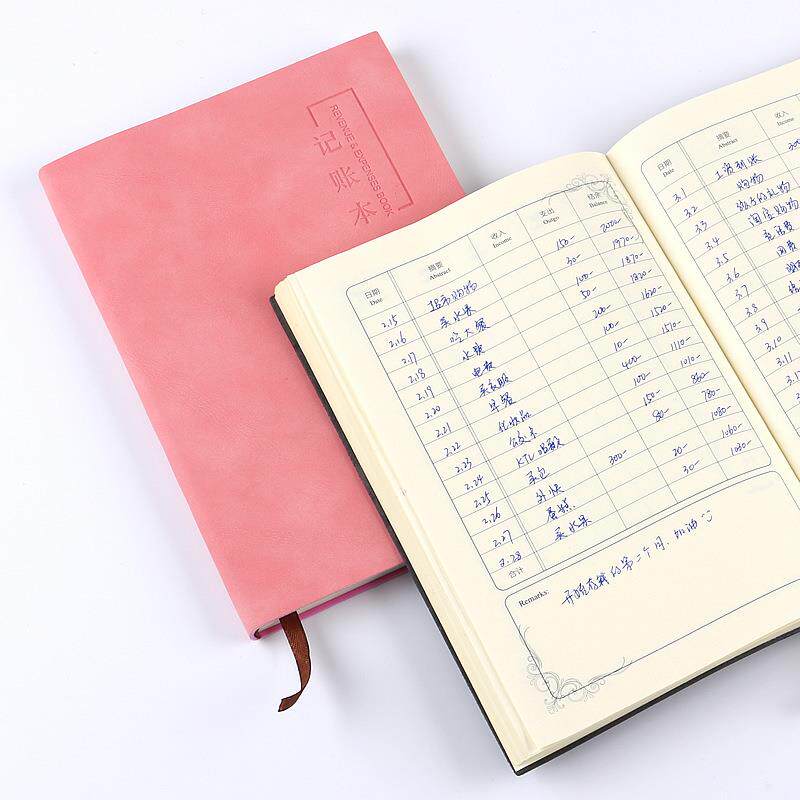 REVENUE & EXPENSES BOOK
记账本
日期 摘要 收入 支出 结余
Date Abstract Income Outgo Balance
2.15 超市购物 150- 2000-
2.16 买水果 30- 1970-
2.17 吃大餐 100- 1870-
2.18 水费 50- 1820-
2.19 电费 200- 1620-
2.20 买衣服 100- 1520-
2.21 早餐 10- 1510-
2.22 化妆品 400- 1110-
2.23 100- 1010-
2.24 KTV唱歌 150- 860-
2.25 买包 80- 780-
2.26 外快 300- 1080-
2.27 蛋糕 20- 1060-
2.28 买水果 30- 1030-
合计
Remarks: 开始存钱的第二个月,加油
日期 摘要 收入
Date Abstract Income
3.1 工资到账
3.2 购物
3.3 的礼物
3.4 淘宝购物
3.5
3.6
3.7
3.8
3.9
3.10
3.11